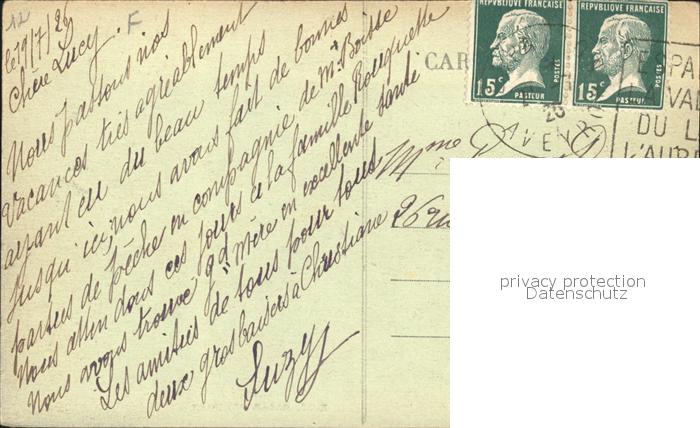 le 9/7/26
F
Chère Lucy.
Nous passons nos
vacances très agréablement
ayant eu du beau temps
jusqu'ici, nous avons fait de bonnes
parties de pêche en compagnie de Mr Boisse
Nous atten dons ces jours ci la famille Rouquette
Nous avons trouvé gd mère en excellente santé
Les amitiés de tous pour tous
deux gros baisers à Christiane
Suzy
CAR
RÉPUBLIQUE FRANÇAISE
15c
POSTES
PASTEUR
RÉPUBLIQUE FRANÇAISE
15c
POSTES
PASTEUR
26
AVEYRON
VAL
DU L
L'AUB
Mme
26 ru
privacy protection
Datenschutz